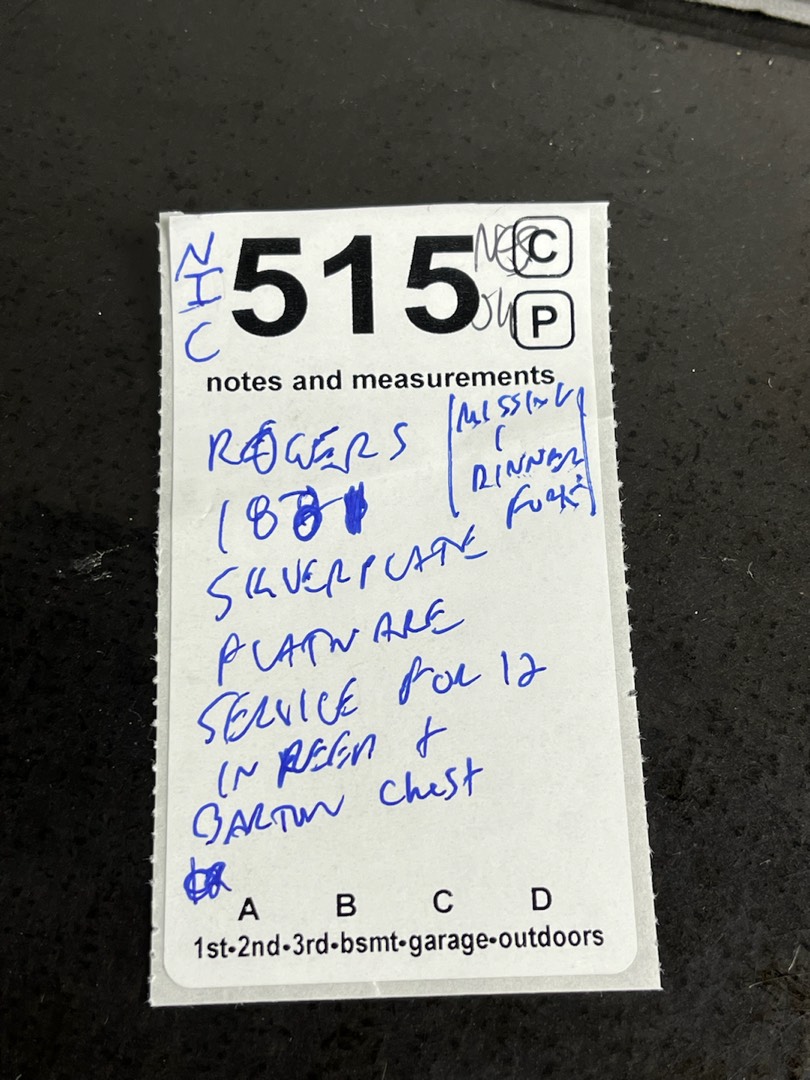 NIC
515
C
P
notes and measurements
ROGERS
188
[MISSING
1
DINNER
FORK]
SILVERPLATE
FLATWARE
SERVICE FOR 12
IN REED +
BARTON Chest
A B C D
1st•2nd•3rd•bsmt•garage•outdoors